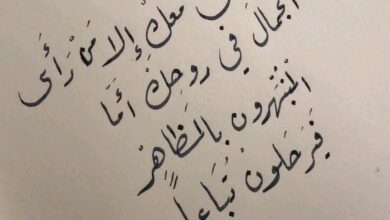 معكِ إلا من رَأَى
الجمالَ في روحكْ أمّا
المُنْبَهرون بالمَظَاهِرْ
فَيَرحلونْ تُبَاعاً